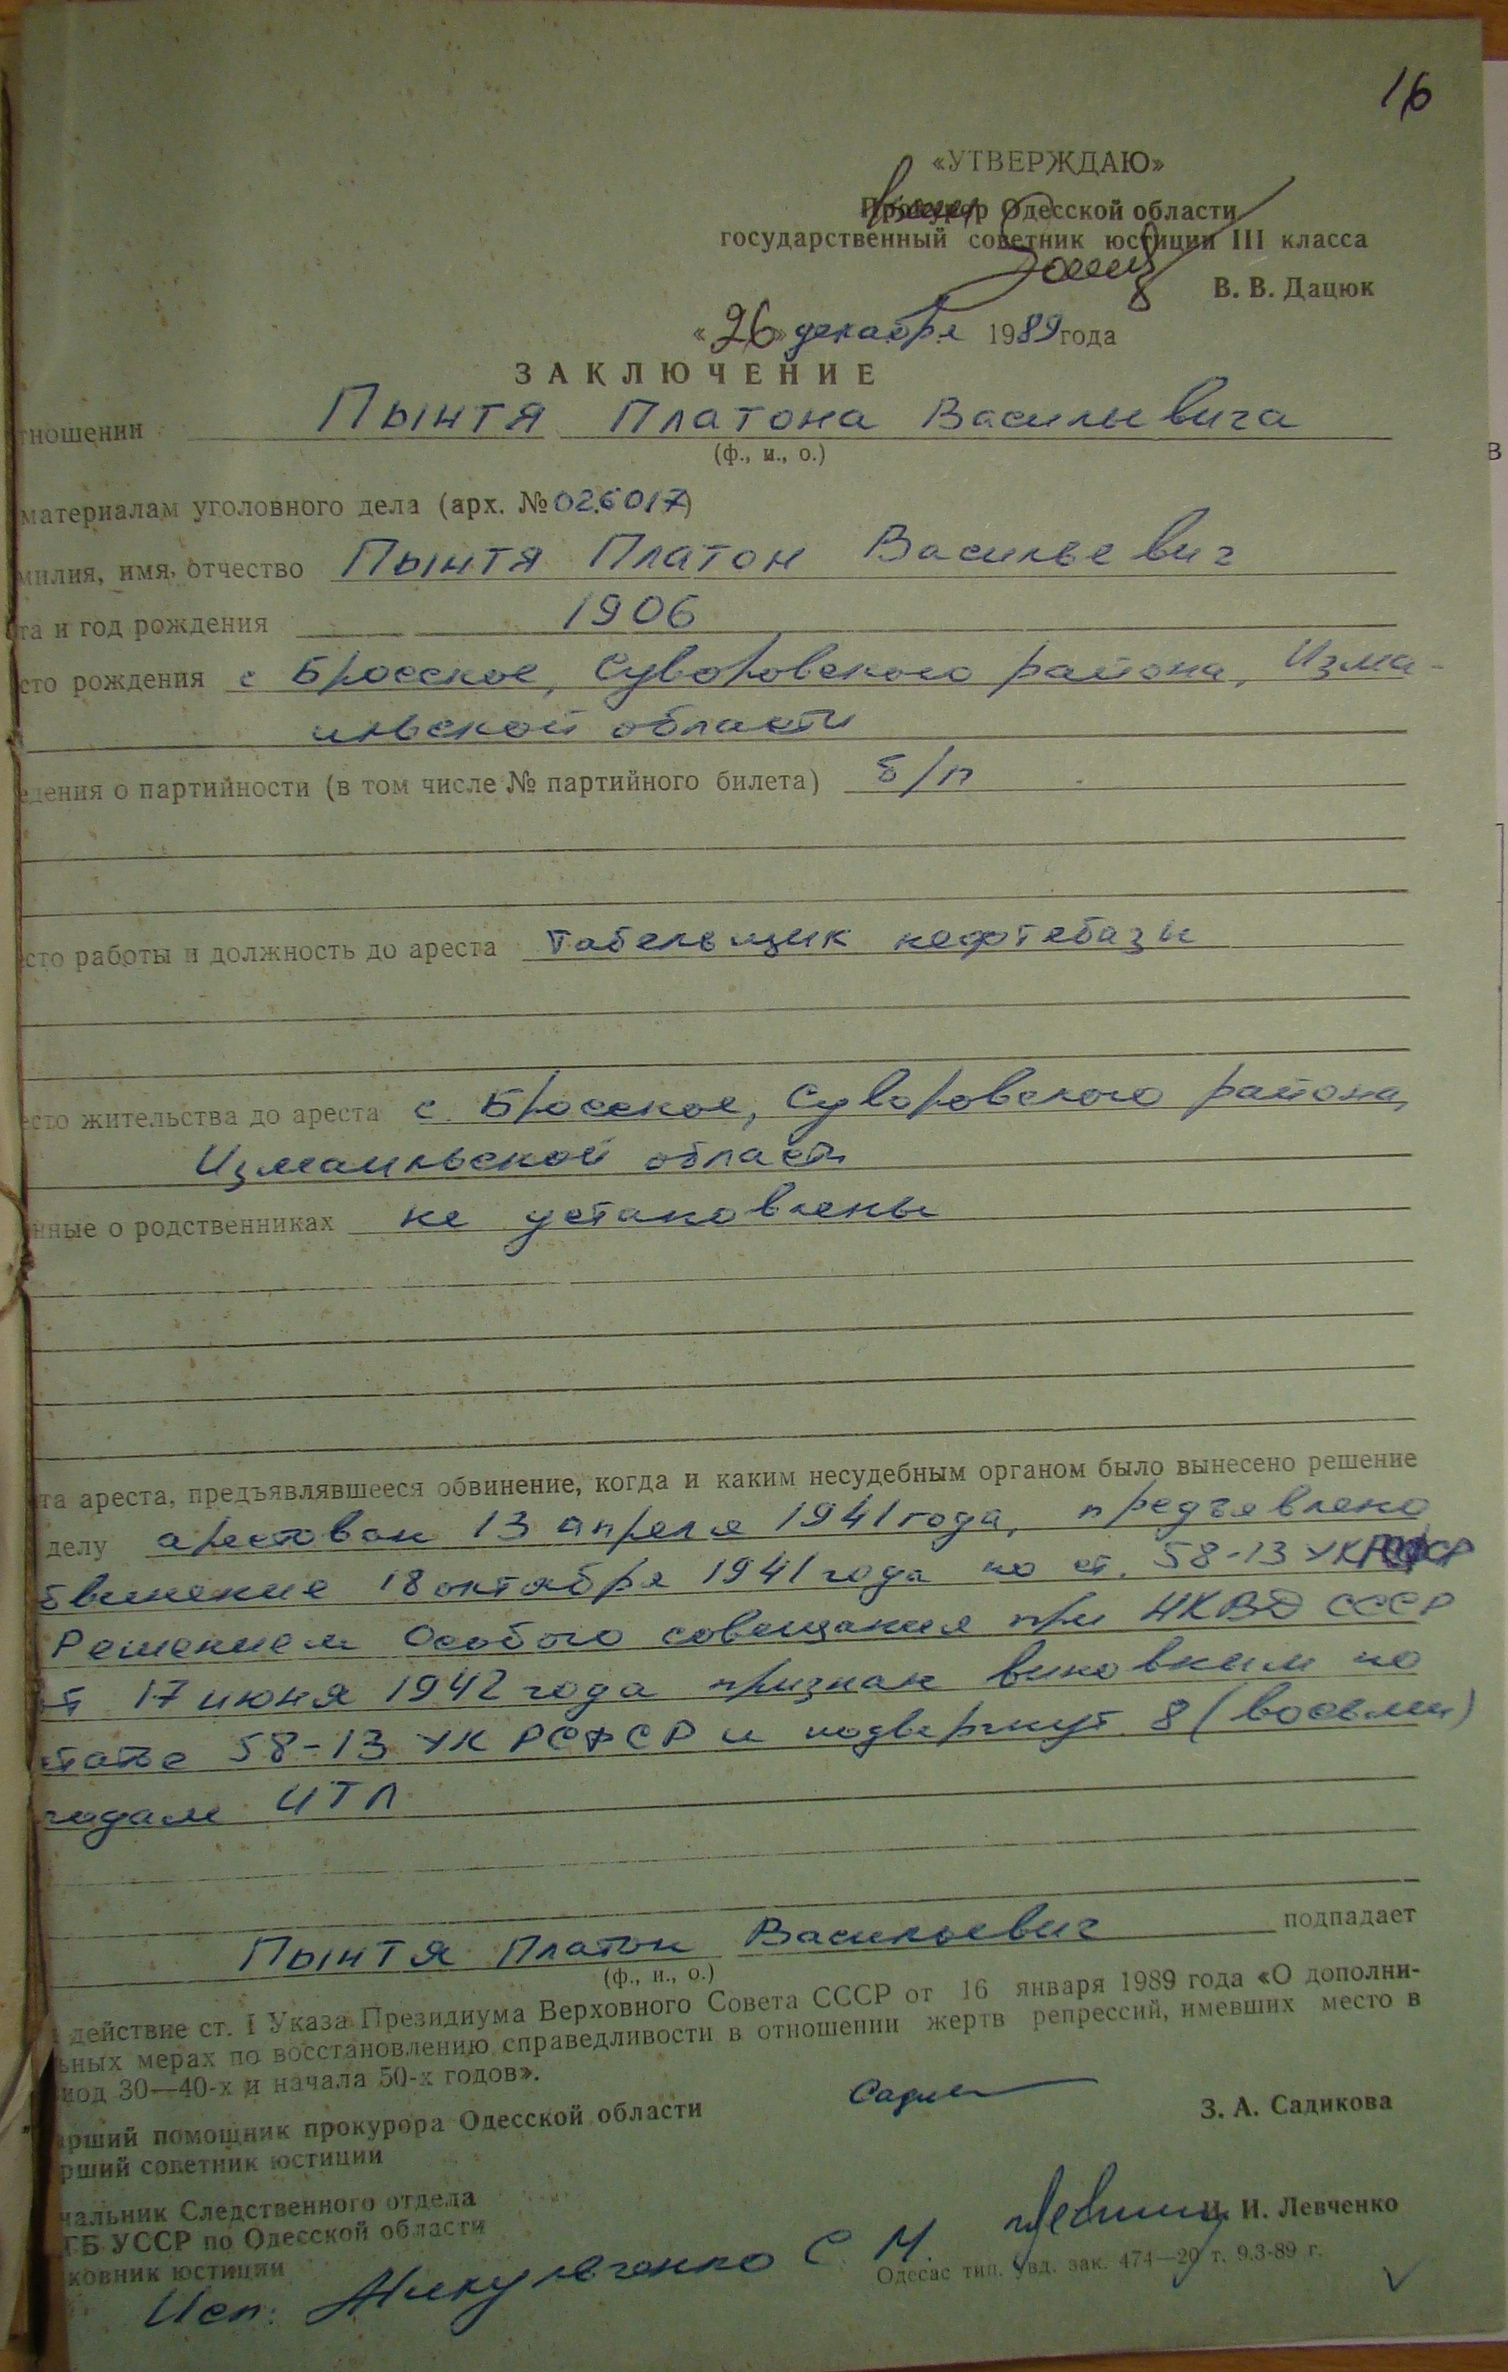 16
«УТВЕРЖДАЮ»
Прокурор Одесской области
государственный советник юстиции III класса
В. В. Дацюк
«26» декабря 1989 года
ЗАКЛЮЧЕНИЕ
тношении Пынтя Платона Васильевича
(ф., и., о.)
материалам уголовного дела (арх. № 026017)
милия, имя, отчество Пынтя Платон Васильевич
та и год рождения 1906
сто рождения с Бросское, Суворовского района, Изма-
ильской области
едения о партийности (в том числе № партийного билета) б/п
сто работы и должность до ареста табельщик нефтебазы
есто жительства до ареста с. Бросское, Суворовского района,
Измаильской области
нные о родственниках не установлены
та ареста, предъявлявшееся обвинение, когда и каким несудебным органом было вынесено решение
делу арестован 13 апреля 1941 года, предъявлено
бвинение 18 октября 1941 года по ст. 58-13 УК РСФСР
Решением Особого совещания при НКВД СССР
от 17 июня 1942 года признан виновным по
статье 58-13 УК РСФСР и подвергнут 8 (восьми)
годам ИТЛ
Пынтя Платон Васильевич подпадает
(ф., и., о.)
действие ст. I Указа Президиума Верховного Совета СССР от 16 января 1989 года «О дополни-
ьных мерах по восстановлению справедливости в отношении жертв репрессий, имевших место в
иод 30—40-х и начала 50-х годов».
арший помощник прокурора Одесской области
З. А. Садикова
рший советник юстиции
чальник Следственного отдела
ГБ УССР по Одесской области
И. И. Левченко
ковник юстиции
Одесас тип. увд. зак. 474—20 т. 9.3-89 г.
Исп: С. М.